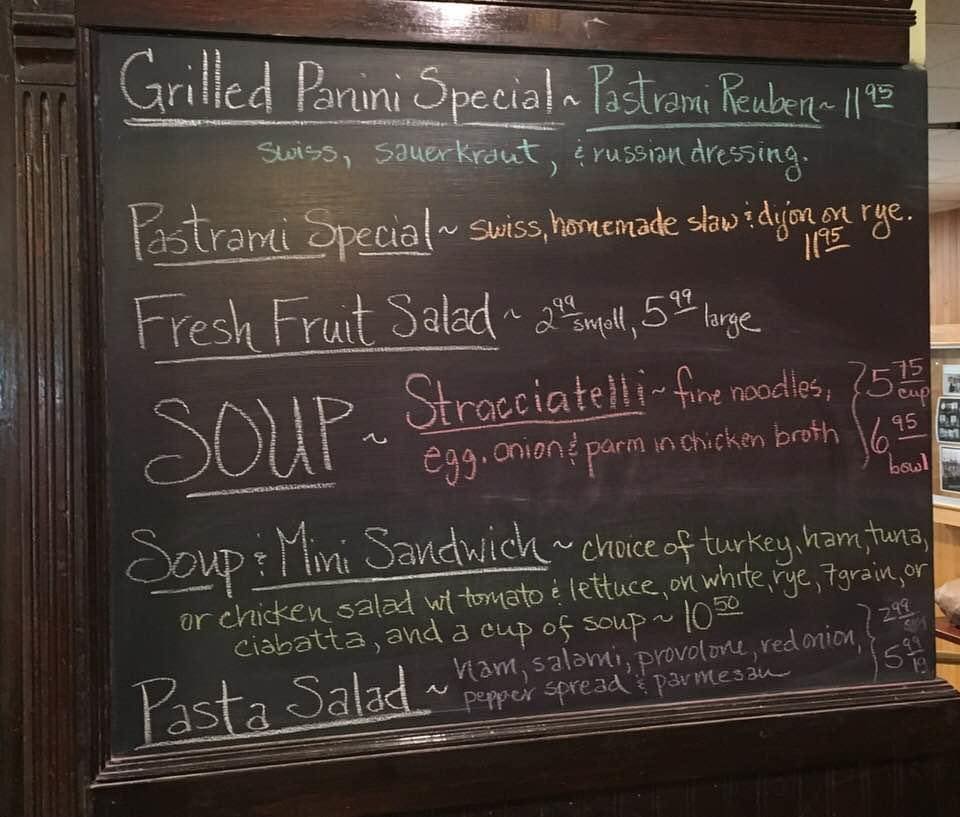 Grilled Panini Special ~ Pastrami Reuben ~ 11 95
swiss, sauerkraut, & russian dressing.
Pastrami Special ~ swiss, homemade slaw & dijon on rye.
11 95
Fresh Fruit Salad ~ 2 99 small, 5 99 large
SOUP ~ Stracciatelli ~ fine noodles,
egg, onion & parm in chicken broth
5 75 cup
6 95 bowl
Soup & Mini Sandwich ~ choice of turkey, ham, tuna,
or chicken salad w/ tomato & lettuce, on white, rye, 7grain, or
ciabatta, and a cup of soup ~ 10 50
Pasta Salad ~ ham, salami, provolone, red onion,
pepper spread & parmesan
2 99 sm
5 99 lg